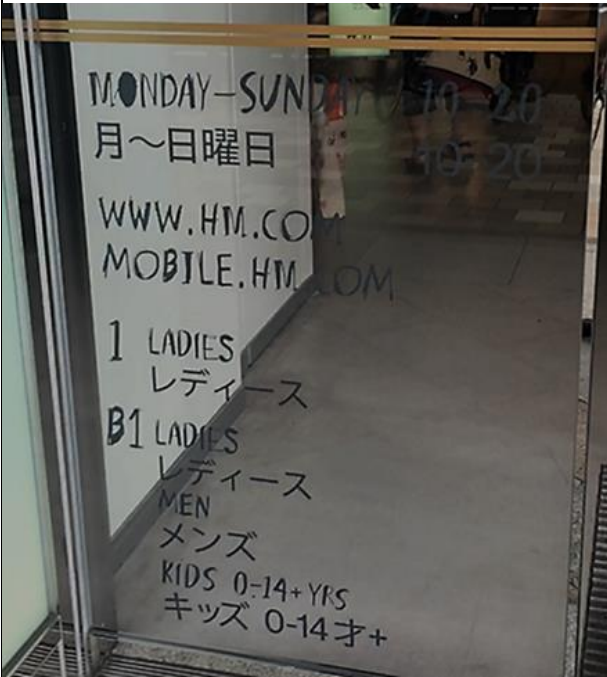 MONDAY-SUNDAY 10-20
月～日曜日 10-20
WWW.HM.COM
MOBILE.HM.COM
1 LADIES
レディース
B1 LADIES
レディース
MEN
メンズ
KIDS 0-14+YRS
キッズ 0-14才+